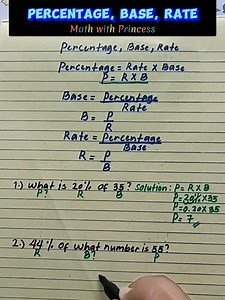 PERCENTAGE, BASE, RATE
Math with Princess
Percentage, Base, Rate
Percentage = Rate x Base
P = R X B
Base = Percentage
Rate
B = P
R
Rate = Percentage
Base
R = P
B
1.) What is 20% of 35? Solution: P = R X B
P? R B P = 20% X 35
P = 0.20 X 35
P = 7
2.) 44% of what number is 55?
R B? P